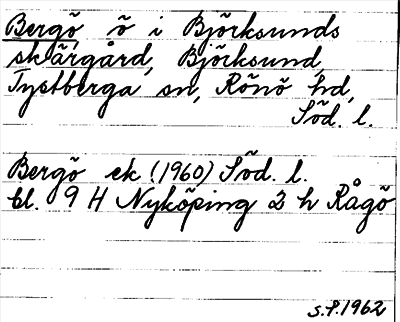 Bergö, ö i Björksunds
skärgård, Björksund,
Tystberga sn, Rönö hd,
Söd. l.
Bergö ek (1960) Söd. l.
bl. 9 H Nyköping 2 h Rågö
s.f. 1962